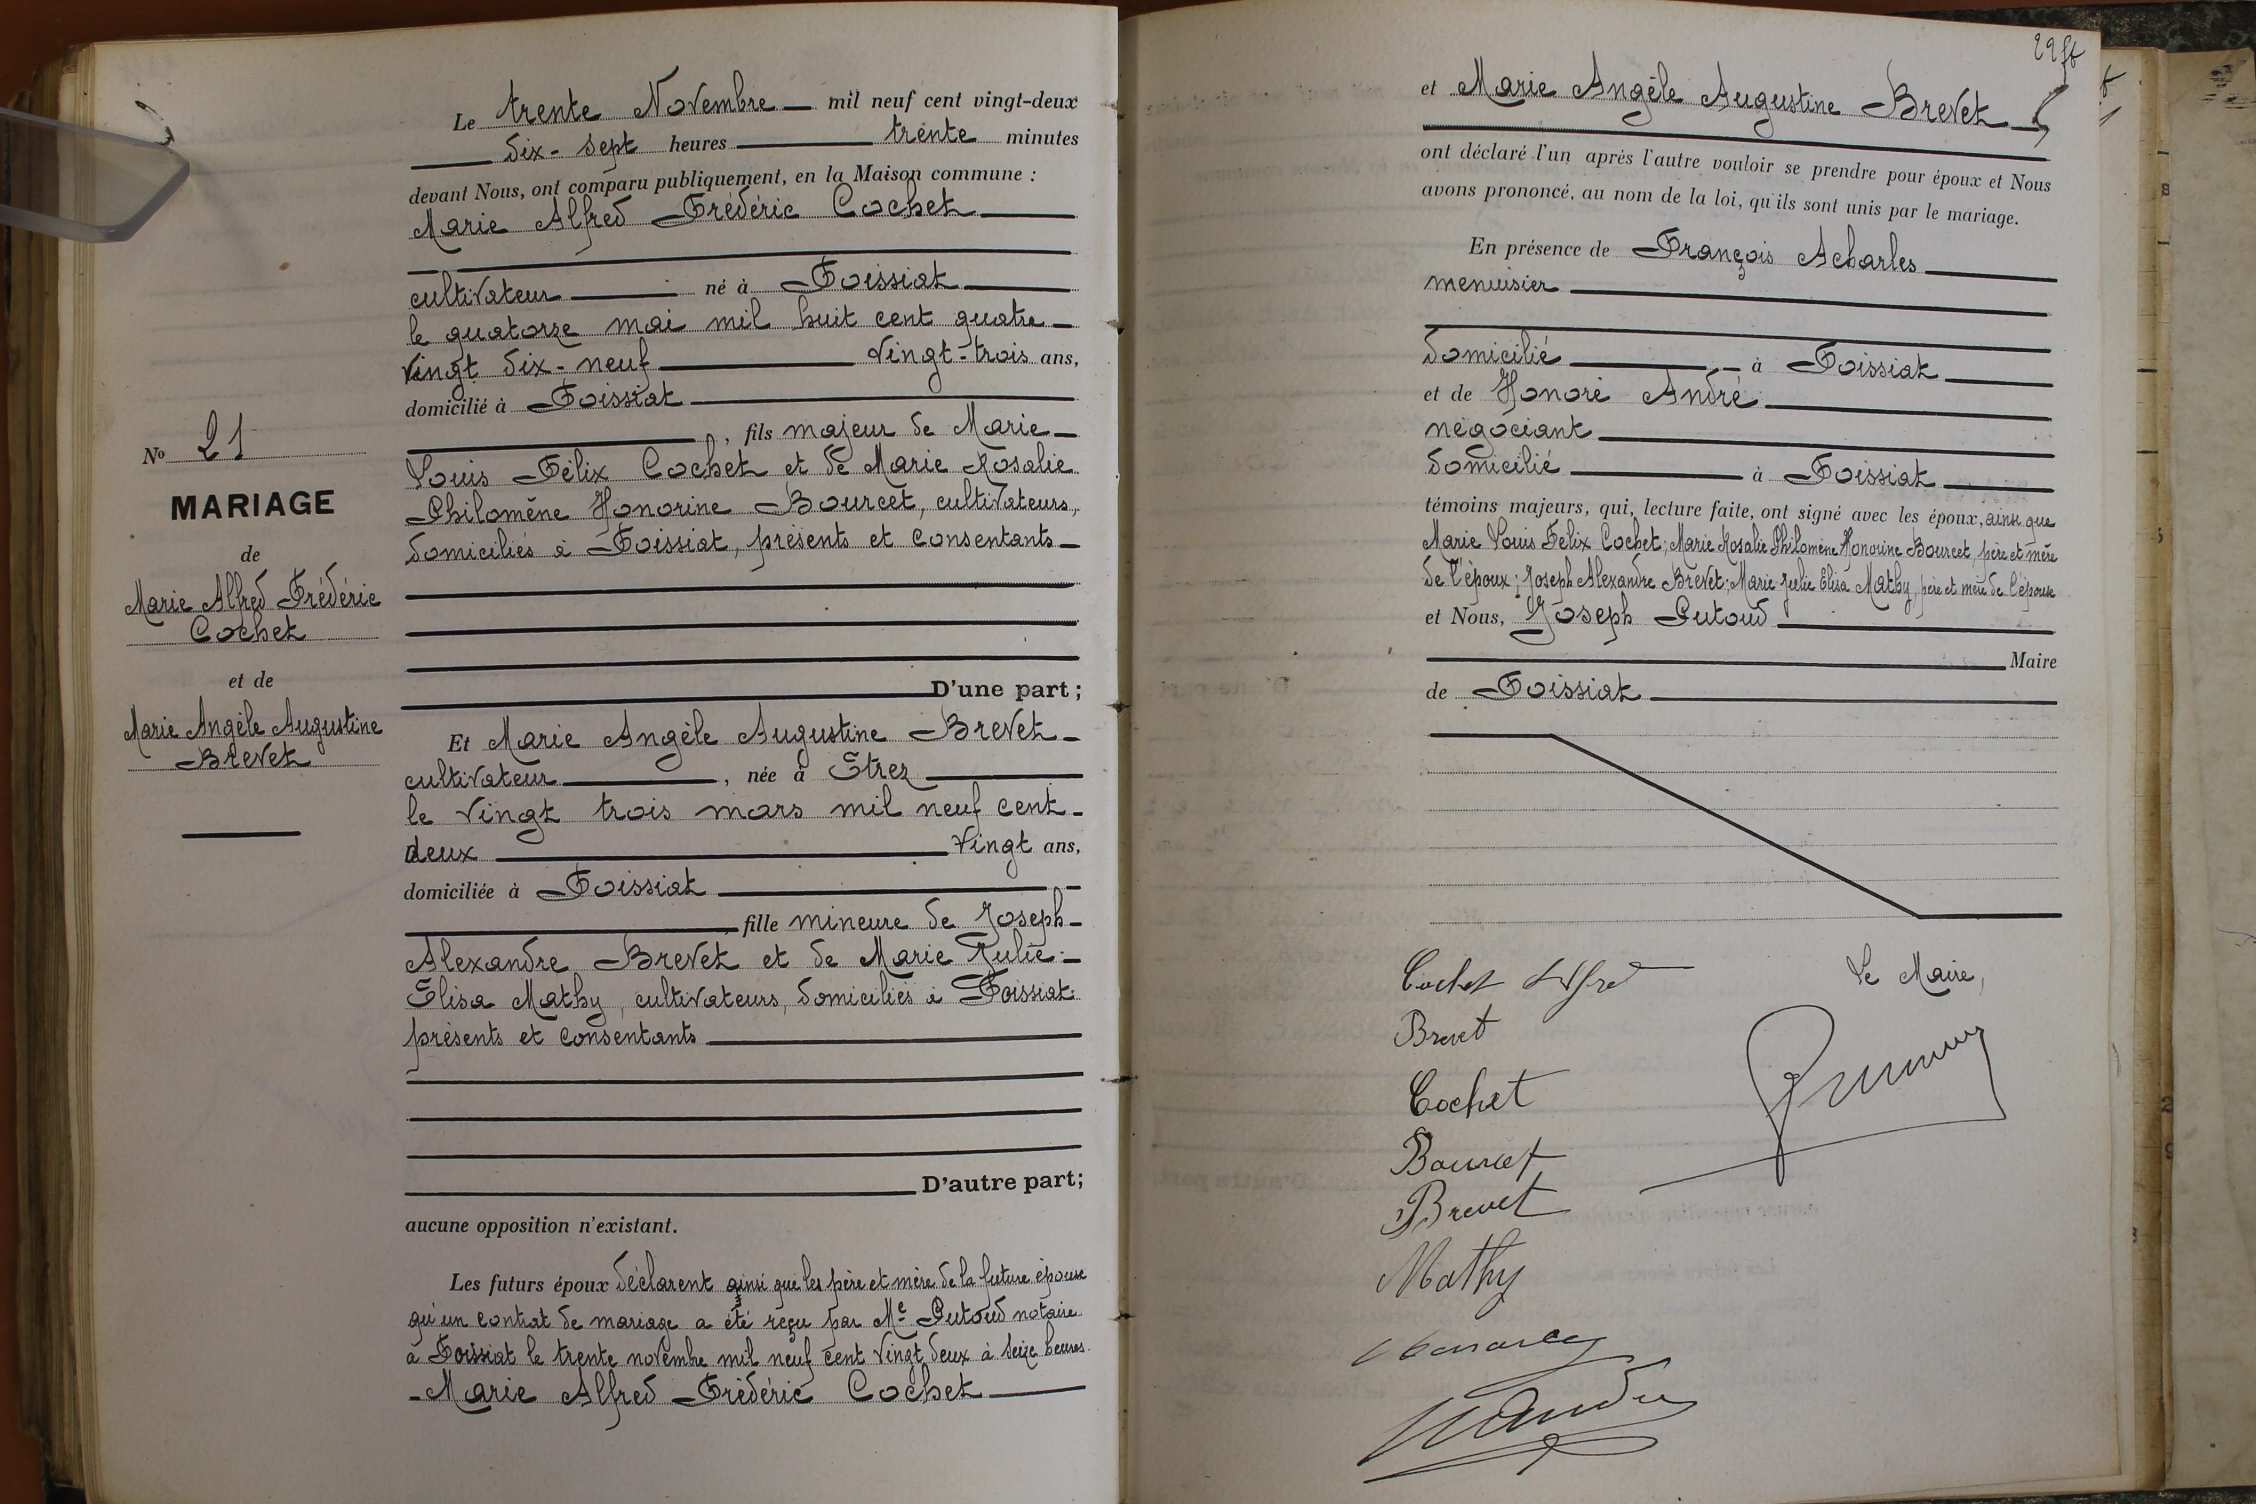 Le trente Novembre mil neuf cent vingt-deux
dix-sept heures trente minutes
devant Nous, ont comparu publiquement, en la Maison commune :
Marie Alfred Frédéric Cochet
cultivateur né à Foissiat
le quatorze mai mil huit cent quatre
vingt dix-neuf vingt-trois ans,
domicilié à Foissiat
, fils majeur de Marie
Louis Félix Cochet et de Marie Rosalie
Philomène Honorine Bourcet, cultivateurs,
domiciliés à Foissiat, présents et consentants
D'une part ;
Et Marie Angèle Augustine Brevet
cultivateur, née à Etrez
le vingt trois mars mil neuf cent
deux vingt ans,
domiciliée à Foissiat
fille mineure de Joseph
Alexandre Brevet et de Marie Julie
Elisa Mathy, cultivateurs, domiciliés à Foissiat
présents et consentants
D'autre part ;
aucune opposition n'existant.
Les futurs époux déclarent ainsi que les père et mère de la future épouse
qu'un contrat de mariage a été reçu par Me Putoud notaire
à Foissiat le trente novembre mil neuf cent vingt deux à seize heures.
Marie Alfred Frédéric Cochet
No 21
MARIAGE
de
Marie Alfred Frédéric
Cochet
et de
Marie Angèle Augustine
Brevet
et Marie Angèle Augustine Brevet
ont déclaré l'un après l'autre vouloir se prendre pour époux et Nous
avons prononcé, au nom de la loi, qu'ils sont unis par le mariage.
En présence de François Acharles
menuisier
domicilié à Foissiat
et de Honoré André
négociant
domicilié à Foissiat
témoins majeurs, qui, lecture faite, ont signé avec les époux, ainsi que
Marie Louis Félix Cochet ; Marie Rosalie Philomène Honorine Bourcet, père et mère
de l'époux ; Joseph Alexandre Brevet ; Marie Julie Elisa Mathy, père et mère de l'épouse
et Nous, Joseph Putoud
Maire
de Foissiat
Cochet Alfred
Le Maire,
Brevet
Cochet
Bourcet
Brevet
Mathy